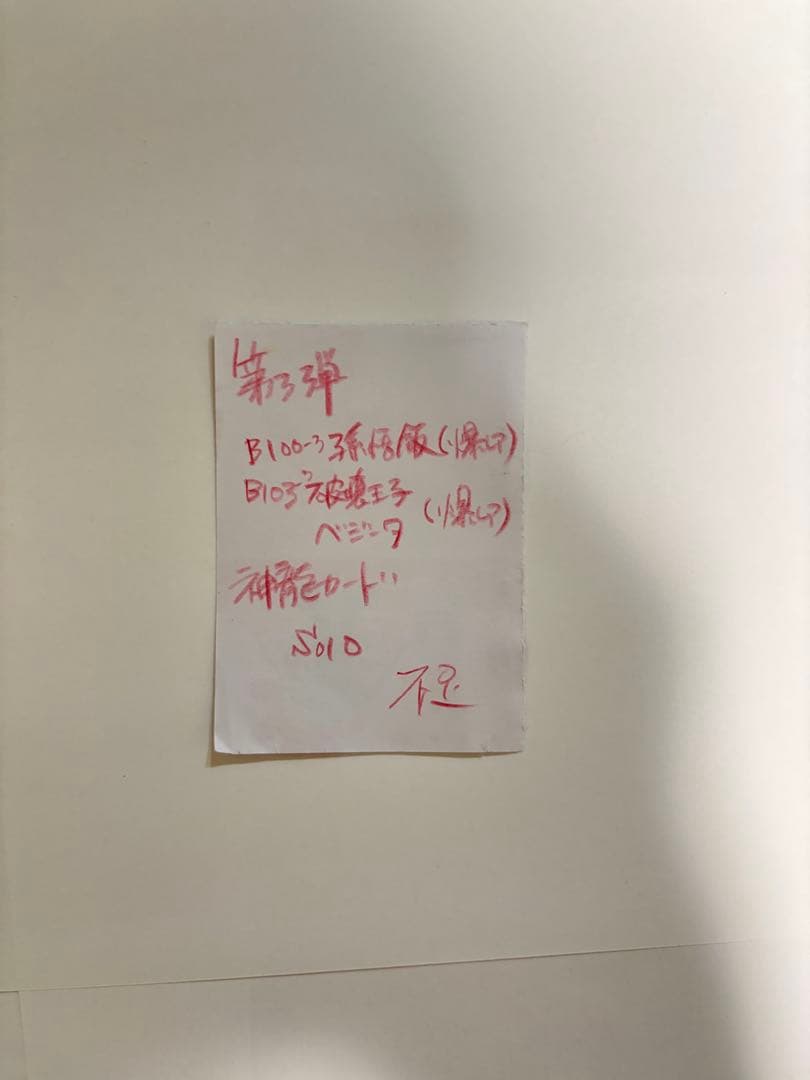 第3弾
B100-3 孫悟飯(爆レア)
B103-3 破壊王子
ベジータ (爆レア)
神龍カード
S010
不足